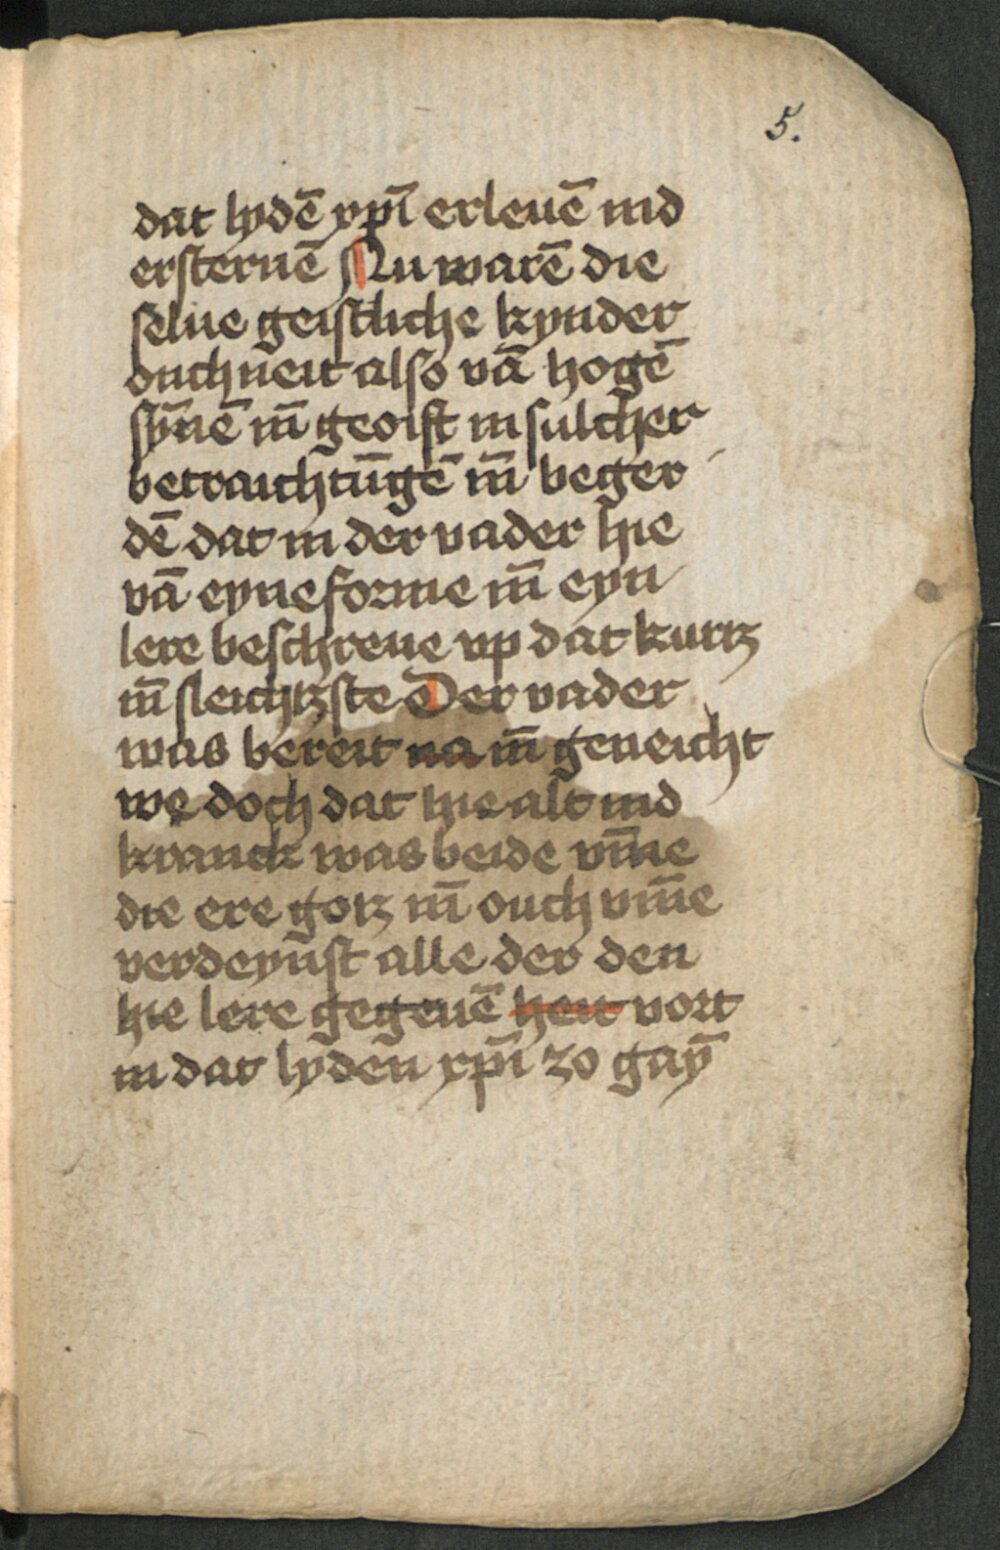 5.
dat lydē xp̄i erleuē ind
ersteruē Nu warē die
selue geistliche kynder
ouch neit also vā hogē
sȳnē in̄ geoist in sulcher
betraichtūgē in̄ beger
dē dat in der vader hie
vā eyne forme in̄ eyn
lere beschreue vp dat kurtz
in̄ sleichtzste Der vader
was bereit na in̄ geneicht
we doch dat hie alt ind
kranck was beide vm̄e
die ere gotz in̄ ouch vm̄e
verdeynst alle der den
hie lere gegeuē heit vort
in dat lyden xp̄i zo gaȳ